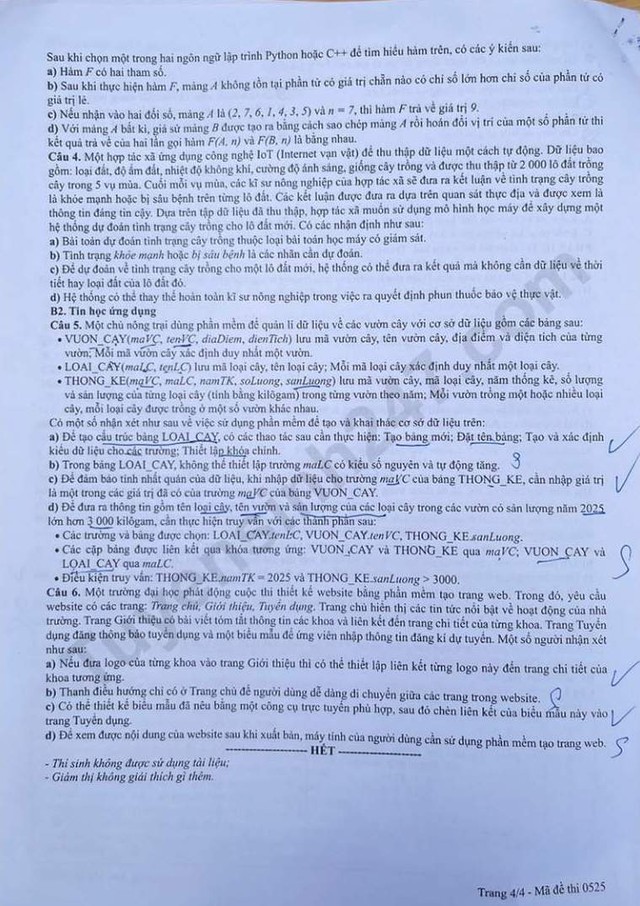 Sau khi chọn một trong hai ngôn ngữ lập trình Python hoặc C++ để tìm hiểu hàm trên, có các ý kiến sau:
a) Hàm F có hai tham số.
b) Sau khi thực hiện hàm F, mảng A không tồn tại phần tử có giá trị chẵn nào có chỉ số lớn hơn chỉ số của phần tử có
giá trị lẻ.
c) Nếu nhận vào hai đối số, mảng A là (2, 7, 6, 1, 4, 3, 5) và n = 7, thì hàm F trả về giá trị 9.
d) Với mảng A bất kì, giả sử mảng B được tạo ra bằng cách sao chép mảng A rồi hoán đổi vị trí của một số phần tử thì
kết quả trả về của hai lần gọi hàm F(A, n) và F(B, n) là bằng nhau.
Câu 4. Một hợp tác xã ứng dụng công nghệ IoT (Internet vạn vật) để thu thập dữ liệu một cách tự động. Dữ liệu bao
gồm: loại đất, độ ẩm đất, nhiệt độ không khí, cường độ ánh sáng, giống cây trồng và được thu thập từ 2 000 lô đất trồng
cây trong 5 vụ mùa. Cuối mỗi vụ mùa, các kĩ sư nông nghiệp của hợp tác xã sẽ đưa ra kết luận về tình trạng cây trồng
là khỏe mạnh hoặc bị sâu bệnh trên từng lô đất. Các kết luận được đưa ra dựa trên quan sát thực địa và được xem là
thông tin đáng tin cậy. Dựa trên tập dữ liệu đã thu thập, hợp tác xã muốn sử dụng mô hình học máy để xây dựng một
hệ thống dự đoán tình trạng cây trồng cho lô đất mới. Có các nhận định như sau:
a) Bài toán dự đoán tình trạng cây trồng thuộc loại bài toán học máy có giám sát.
b) Tình trạng khỏe mạnh hoặc bị sâu bệnh là các nhãn cần dự đoán.
c) Để dự đoán về tình trạng cây trồng cho một lô đất mới, hệ thống có thể đưa ra kết quả mà không cần dữ liệu về thời
tiết hay loại đất của lô đất đó.
d) Hệ thống có thể thay thế hoàn toàn kĩ sư nông nghiệp trong việc ra quyết định phun thuốc bảo vệ thực vật.
B2. Tin học ứng dụng
Câu 5. Một chủ nông trại dùng phần mềm để quản lí dữ liệu về các vườn cây với cơ sở dữ liệu gồm các bảng sau:
• VUON_CAY(maVC, tenVC, diaDiem, dienTich) lưu mã vườn cây, tên vườn cây, địa điểm và diện tích của từng
vườn; Mỗi mã vườn cây xác định duy nhất một vườn.
• LOAI_CAY(maLC, tenLC) lưu mã loại cây, tên loại cây; Mỗi mã loại cây xác định duy nhất một loại cây.
• THONG_KE(maVC, maLC, namTK, soLuong, sanLuong) lưu mã vườn cây, mã loại cây, năm thống kê, số lượng
và sản lượng của từng loại cây (tính bằng kilôgam) trong từng vườn theo năm; Mỗi vườn trồng một hoặc nhiều loại
cây, mỗi loại cây được trồng ở một số vườn khác nhau.
Có một số nhận xét như sau về việc sử dụng phần mềm để tạo và khai thác cơ sở dữ liệu trên:
a) Để tạo cấu trúc bảng LOAI_CAY, có các thao tác sau cần thực hiện: Tạo bảng mới; Đặt tên bảng; Tạo và xác định
kiểu dữ liệu cho các trường; Thiết lập khóa chính.
b) Trong bảng LOAI_CAY, không thể thiết lập trường maLC có kiểu số nguyên và tự động tăng.
c) Để đảm bảo tính nhất quán của dữ liệu, khi nhập dữ liệu cho trường maVC của bảng THONG_KE, cần nhập giá trị
là một trong các giá trị đã có của trường maVC của bảng VUON_CAY.
d) Để đưa ra thông tin gồm tên loại cây, tên vườn và sản lượng của các loại cây trong các vườn có sản lượng năm 2025
lớn hơn 3 000 kilôgam, cần thực hiện truy vấn với các thành phần sau:
• Các trường và bảng được chọn: LOAI_CAY.tenLC, VUON_CAY.tenVC, THONG_KE.sanLuong.
• Các cặp bảng được liên kết qua khóa tương ứng: VUON_CAY và THONG_KE qua maVC; VUON_CAY và
LOAI_CAY qua maLC.
• Điều kiện truy vấn: THONG_KE.namTK = 2025 và THONG_KE.sanLuong > 3000.
Câu 6. Một trường đại học phát động cuộc thi thiết kế website bằng phần mềm tạo trang web. Trong đó, yêu cầu
website có các trang: Trang chủ, Giới thiệu, Tuyển dụng. Trang chủ hiển thị các tin tức nổi bật về hoạt động của nhà
trường. Trang Giới thiệu có bài viết tóm tắt thông tin các khoa và liên kết đến trang chi tiết của từng khoa. Trang Tuyển
dụng đăng thông báo tuyển dụng và một biểu mẫu để ứng viên nhập thông tin đăng kí dự tuyển. Một số người nhận xét
như sau:
a) Nếu đưa logo của từng khoa vào trang Giới thiệu thì có thể thiết lập liên kết từng logo này đến trang chi tiết của
khoa tương ứng.
b) Thanh điều hướng chỉ có ở Trang chủ để người dùng dễ dàng di chuyển giữa các trang trong website.
c) Có thể thiết kế biểu mẫu đã nêu bằng một công cụ trực tuyến phù hợp, sau đó chèn liên kết của biểu mẫu này vào
trang Tuyển dụng.
d) Để xem được nội dung của website sau khi xuất bản, máy tính của người dùng cần sử dụng phần mềm tạo trang web.
HẾT
- Thí sinh không được sử dụng tài liệu;
- Giám thị không giải thích gì thêm.
Trang 4/4 - Mã đề thi 0525
tuyensinh247.com